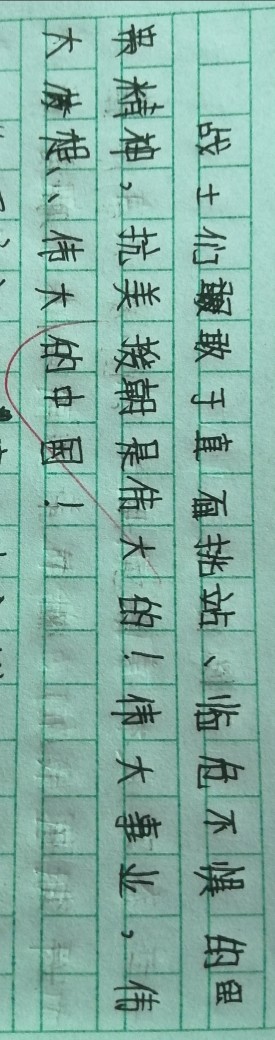 战士们敢于直面挑站、临危不惧的
果精神，抗美援朝是伟大的！伟大事业，伟
大梦想、伟大的中国！